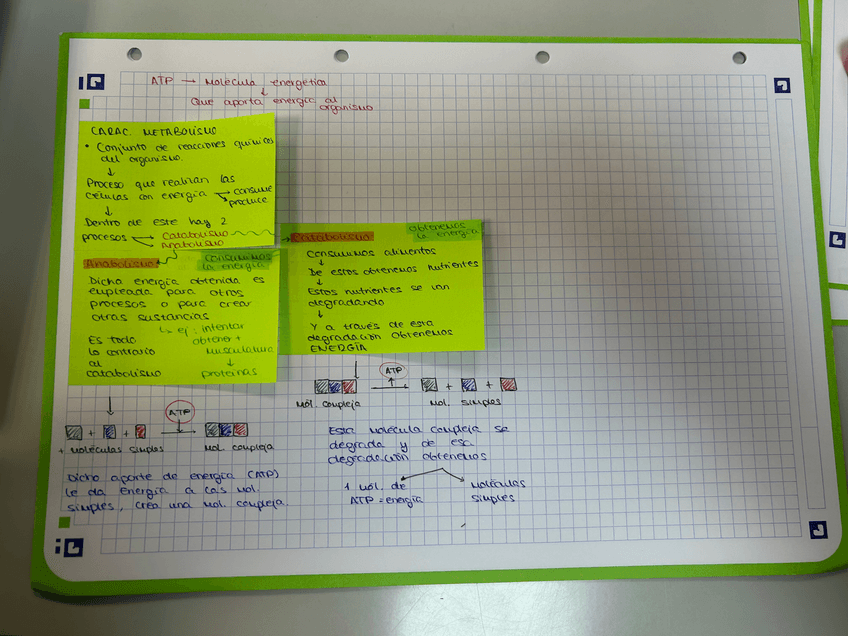 ATP → Molécula energética
↓
Que aporta energía al
organismo
CARAC. METABOLISMO
• Conjunto de reacciones químicas
del organismo.
↓
Proceso que realizan las
células con energía → consume
→ produce
↓
Dentro de este hay 2
procesos Catabolismo
Anabolismo
Catabolismo
obtenemos
la energía
Consumimos alimentos
↓
De estos obtenemos nutrientes
↓
Estos nutrientes se van
degradando
↓
Y a través de esta
degradación obtenemos
ENERGÍA
Anabolismo
Consumimos
la energía
Dicha energía obtenida es
empleada para otros
procesos o para crear
otras sustancias
↳ ej: intentar
obtener +
musculatura
↓
proteínas
Es todo
lo contrario
al
catabolismo
ATP
+ + →
+ moléculas simples Mol. compleja
Dicho aporte de energía (ATP)
le da energía a las mol.
simples, crea una mol. compleja.
ATP
→ + +
Mol. compleja Mol. simples
Esta molécula compleja se
degrada y de esa
degradación obtenemos
1 mol. de
ATP = energía
Moléculas
simples